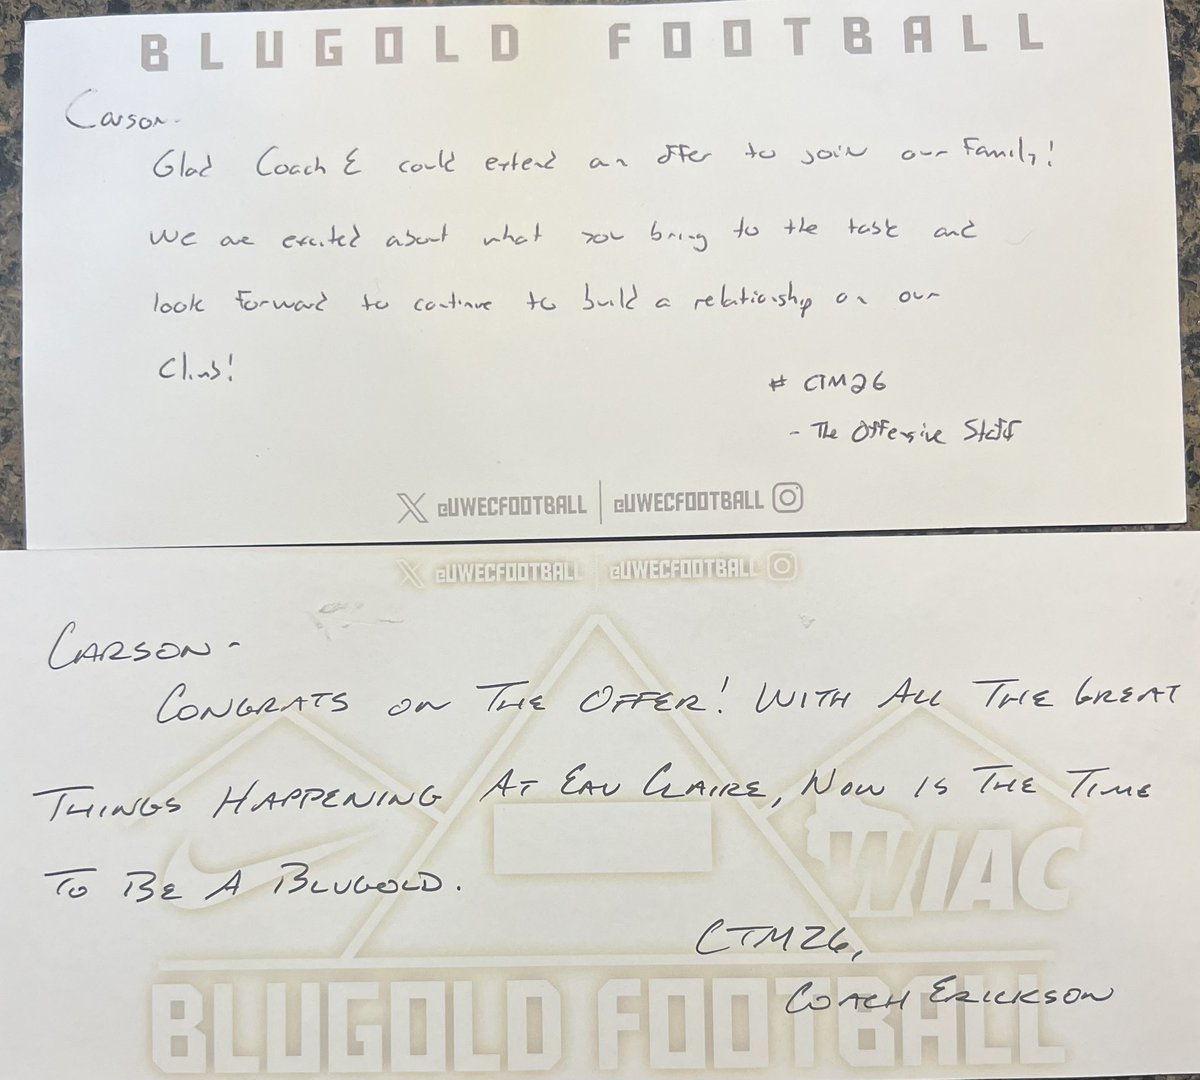 BLUGOLD FOOTBALL
Carson-
Glad Coach E could extend an offer to join our Family!
we are excited about what you bring to the task and
look forward to continue to build a relationship on our
Climb!
# CTM26
- The Offensive Staff
X @UWECFOOTBALL | @UWECFOOTBALL
X @UWECFOOTBALL | @UWECFOOTBALL
CARSON-
CONGRATS ON THE OFFER! WITH ALL THE GREAT
THINGS HAPPENING AT EAU CLAIRE, NOW IS THE TIME
TO BE A BLUGOLD.
WIAC
CTM26,
COACH ERICKSON
BLUGOLD FOOTBALL